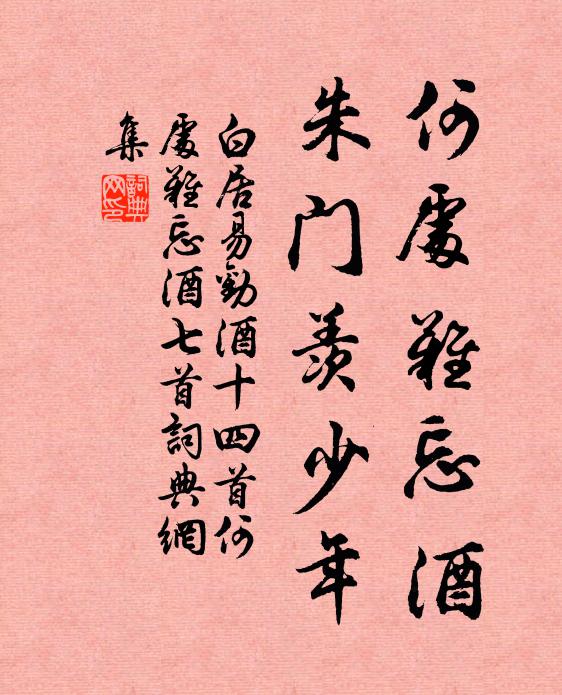 何處難忘酒
朱門羨少年
白居易勸酒十四首何
處難忘酒七首詞典網
集
詞典网印